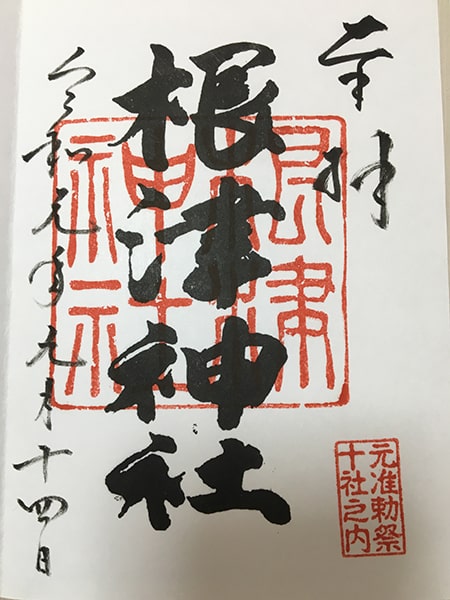 奉拝
根津神社
根津
神社
元准勅祭
十社之内
令和元年 月十四日